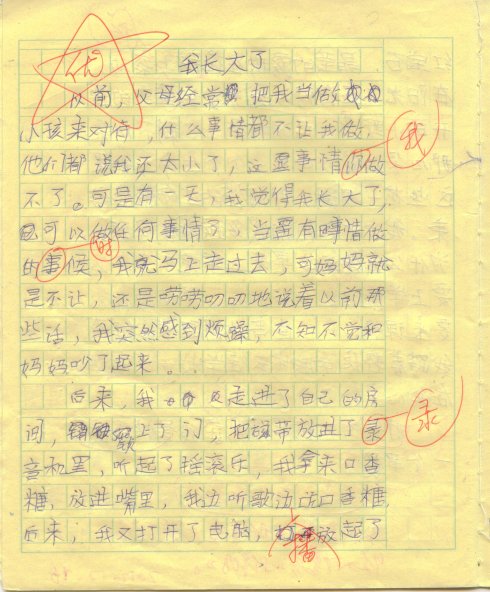 优
我长大了
以前，父母经常把我当做
小孩来对待，什么事情都不让我做，
我
他们都说我还太小了，这里事情你做
不了。可是有一天，我觉得我长大了，
已可以做任何事情了，当里有事情做
时
的事候，我就马上走过去，可妈妈就
是不让，还是唠唠叨叨地说着以前那
些话，我突然感到烦躁，不知不觉和
妈妈吵了起来。
后来，我走进了自己的房
间，锁上了门，把磁带放进了录
录
音机里，听起了摇滚乐，我拿来口香
糖，放进嘴里，我边听歌边口香糖
后来，我又打开了电脑，放起了
播